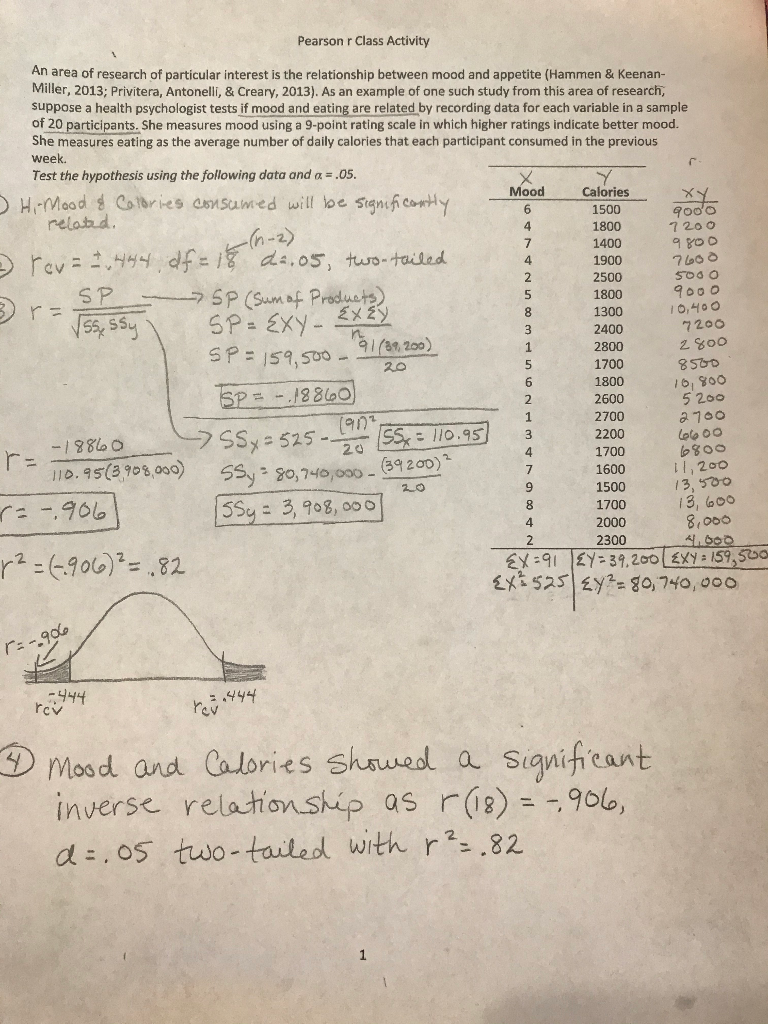 Pearson r Class Activity
An area of research of particular interest is the relationship between mood and appetite (Hammen & Keenan-
Miller, 2013; Privitera, Antonelli, & Creary, 2013). As an example of one such study from this area of research,
suppose a health psychologist tests if mood and eating are related by recording data for each variable in a sample
of 20 participants. She measures mood using a 9-point rating scale in which higher ratings indicate better mood.
She measures eating as the average number of daily calories that each participant consumed in the previous
week.
Test the hypothesis using the following data and α = .05.
H₁-Mood & Calories consumed will be significantly
related.
(n-2)
rcv = ±.444 df = 18 α=.05, two-tailed
3) r = SP / √SSx SSy
SP (Sum of Products)
SP = ΣXY - ΣXΣY / n
SP = 159,500 - 91(39,200) / 20
SP = -.18860
SSx = 525 - (91)² / 20 SSx = 110.95
SSy = 80,740,000 - (39200)² / 20
SSy = 3,908,000
r = -18860 / 110.95(3,908,000)
r = -.906
r² = (-.906)² = .82
r=-.906
rcv =-.444
rcv = .444
X Y r
Mood Calories XY
6 1500 9000
4 1800 7200
7 1400 9800
4 1900 7600
2 2500 5000
5 1800 9000
8 1300 10,400
3 2400 7200
1 2800 2800
5 1700 8500
6 1800 10,800
2 2600 5200
1 2700 2700
3 2200 6600
4 1700 6800
7 1600 11,200
9 1500 13,500
8 1700 13,600
4 2000 8,000
2 2300 4,600
ΣX=91 ΣY=39,200 ΣXY=159,500
ΣX²=525 ΣY²=80,740,000
④ Mood and Calories showed a significant
inverse relationship as r(18) = -.906,
α=.05 two-tailed with r²=.82
1